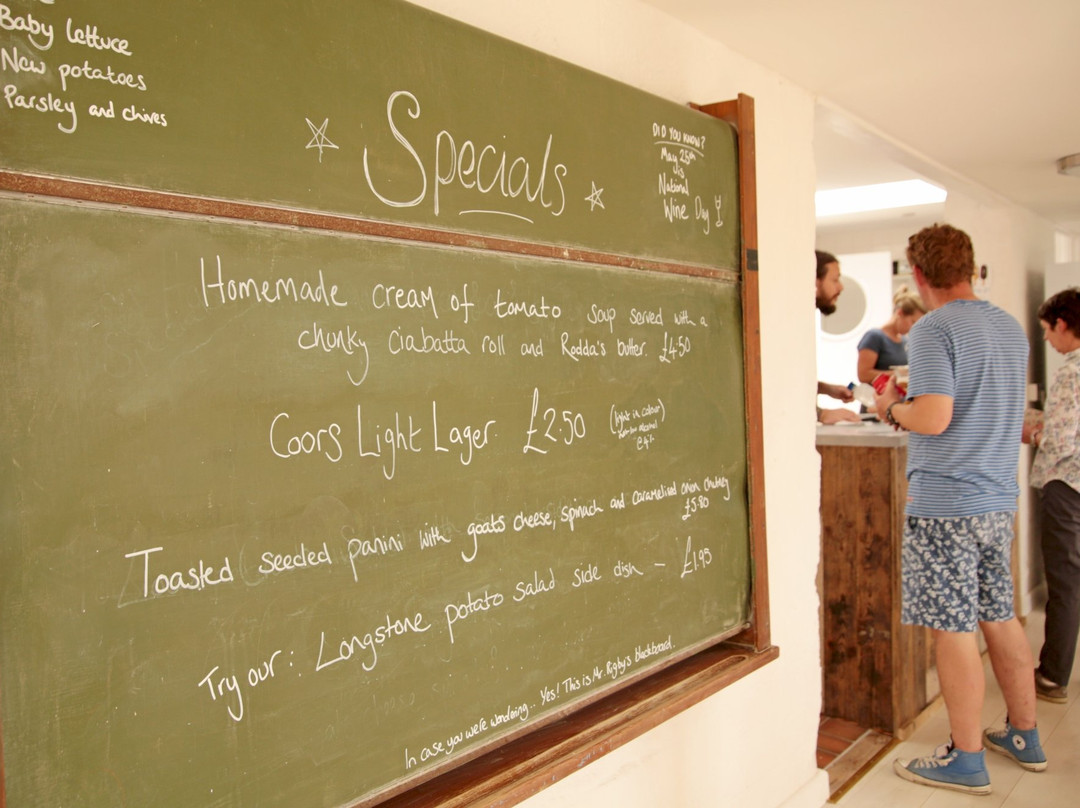 Baby lettuce
New potatoes
Parsley and chives
Specials
DID YOU KNOW?
May 25th
is
National
Wine Day
Homemade cream of tomato soup served with a
chunky ciabatta roll and Rodda's butter. £4.50
Coors Light Lager £2.50
(light in colour)
low alcohol
@4%
Toasted seeded panini with goats cheese, spinach and caramelised onion chutney
£5.80
Try our: Longstone potato salad side dish - £1.95
In case you were wondering... Yes! This is Mr. Rigby's blackboard.